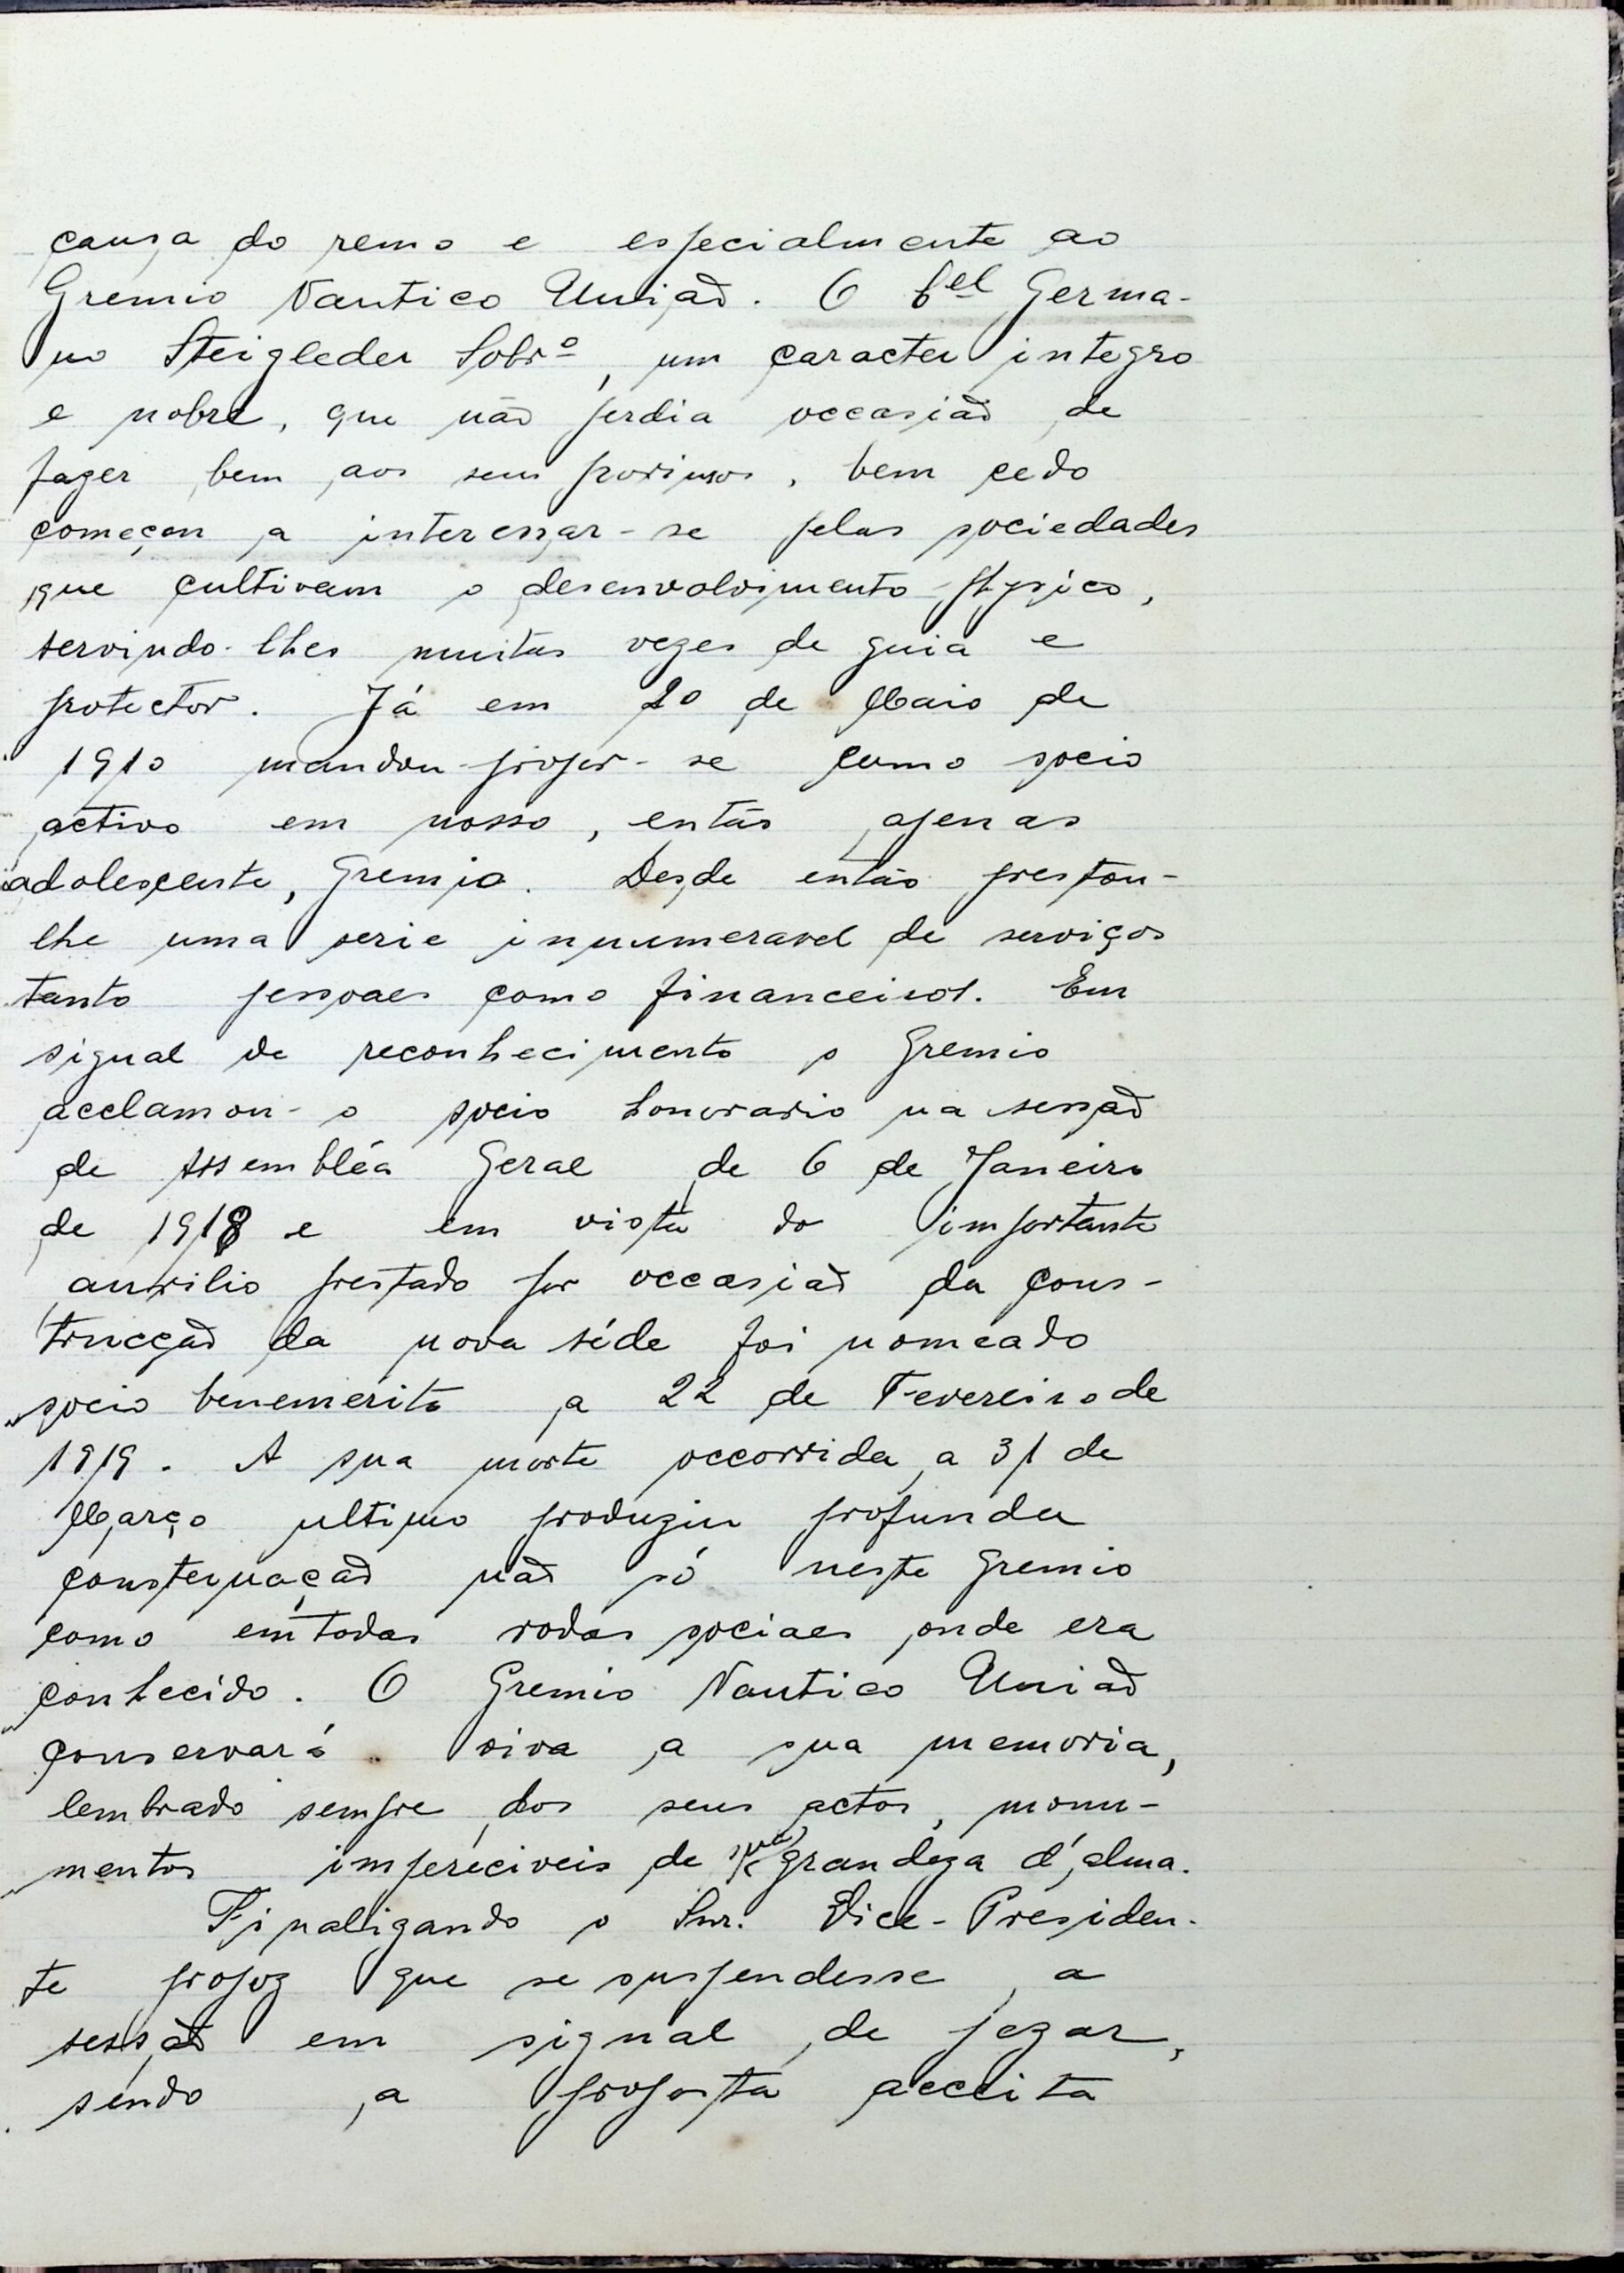 causa do remo e especialmente ao
Gremio Nautico União. O Cel Germa-
no Steigleder Sobrº, um caracter integro
e nobre, que não perdia occasião de
fazer bem aos seus proximos, bem cedo
começou a interessar-se pelas sociedades
que cultivam o desenvolvimento physico,
servindo-lhes muitas vezes de guia e
protector. Já em 20 de Maio de
1910 mandou propor-se como socio
activo em nosso, então apenas
adolescente, Gremio. Desde então prestou-
lhe uma serie innumeravel de serviços
tanto pessoaes como financeiros. Em
signal de reconhecimento o Gremio
acclamou-o socio honorario na sessão
de Assembléa Geral de 6 de Janeiro
de 1918 e em vista do importante
auxilio prestado por occasião da cons-
trucção da nova séde foi nomeado
socio benemerito a 22 de Fevereiro de
1919. A sua morte occorrida a 31 de
Março ultimo produziu profunda
consternação não só neste Gremio
como em todas rodas sociaes onde era
conhecido. O Gremio Nautico União
conservará viva a sua memoria,
lembrado sempre dos seus actos, monu-
mentos impereciveis de sua grandeza d'alma.
Finalizando o Snr. Vice-Presiden-
te propoz que se suspendesse a
sessão em signal de pezar,
sendo a proposta acceita